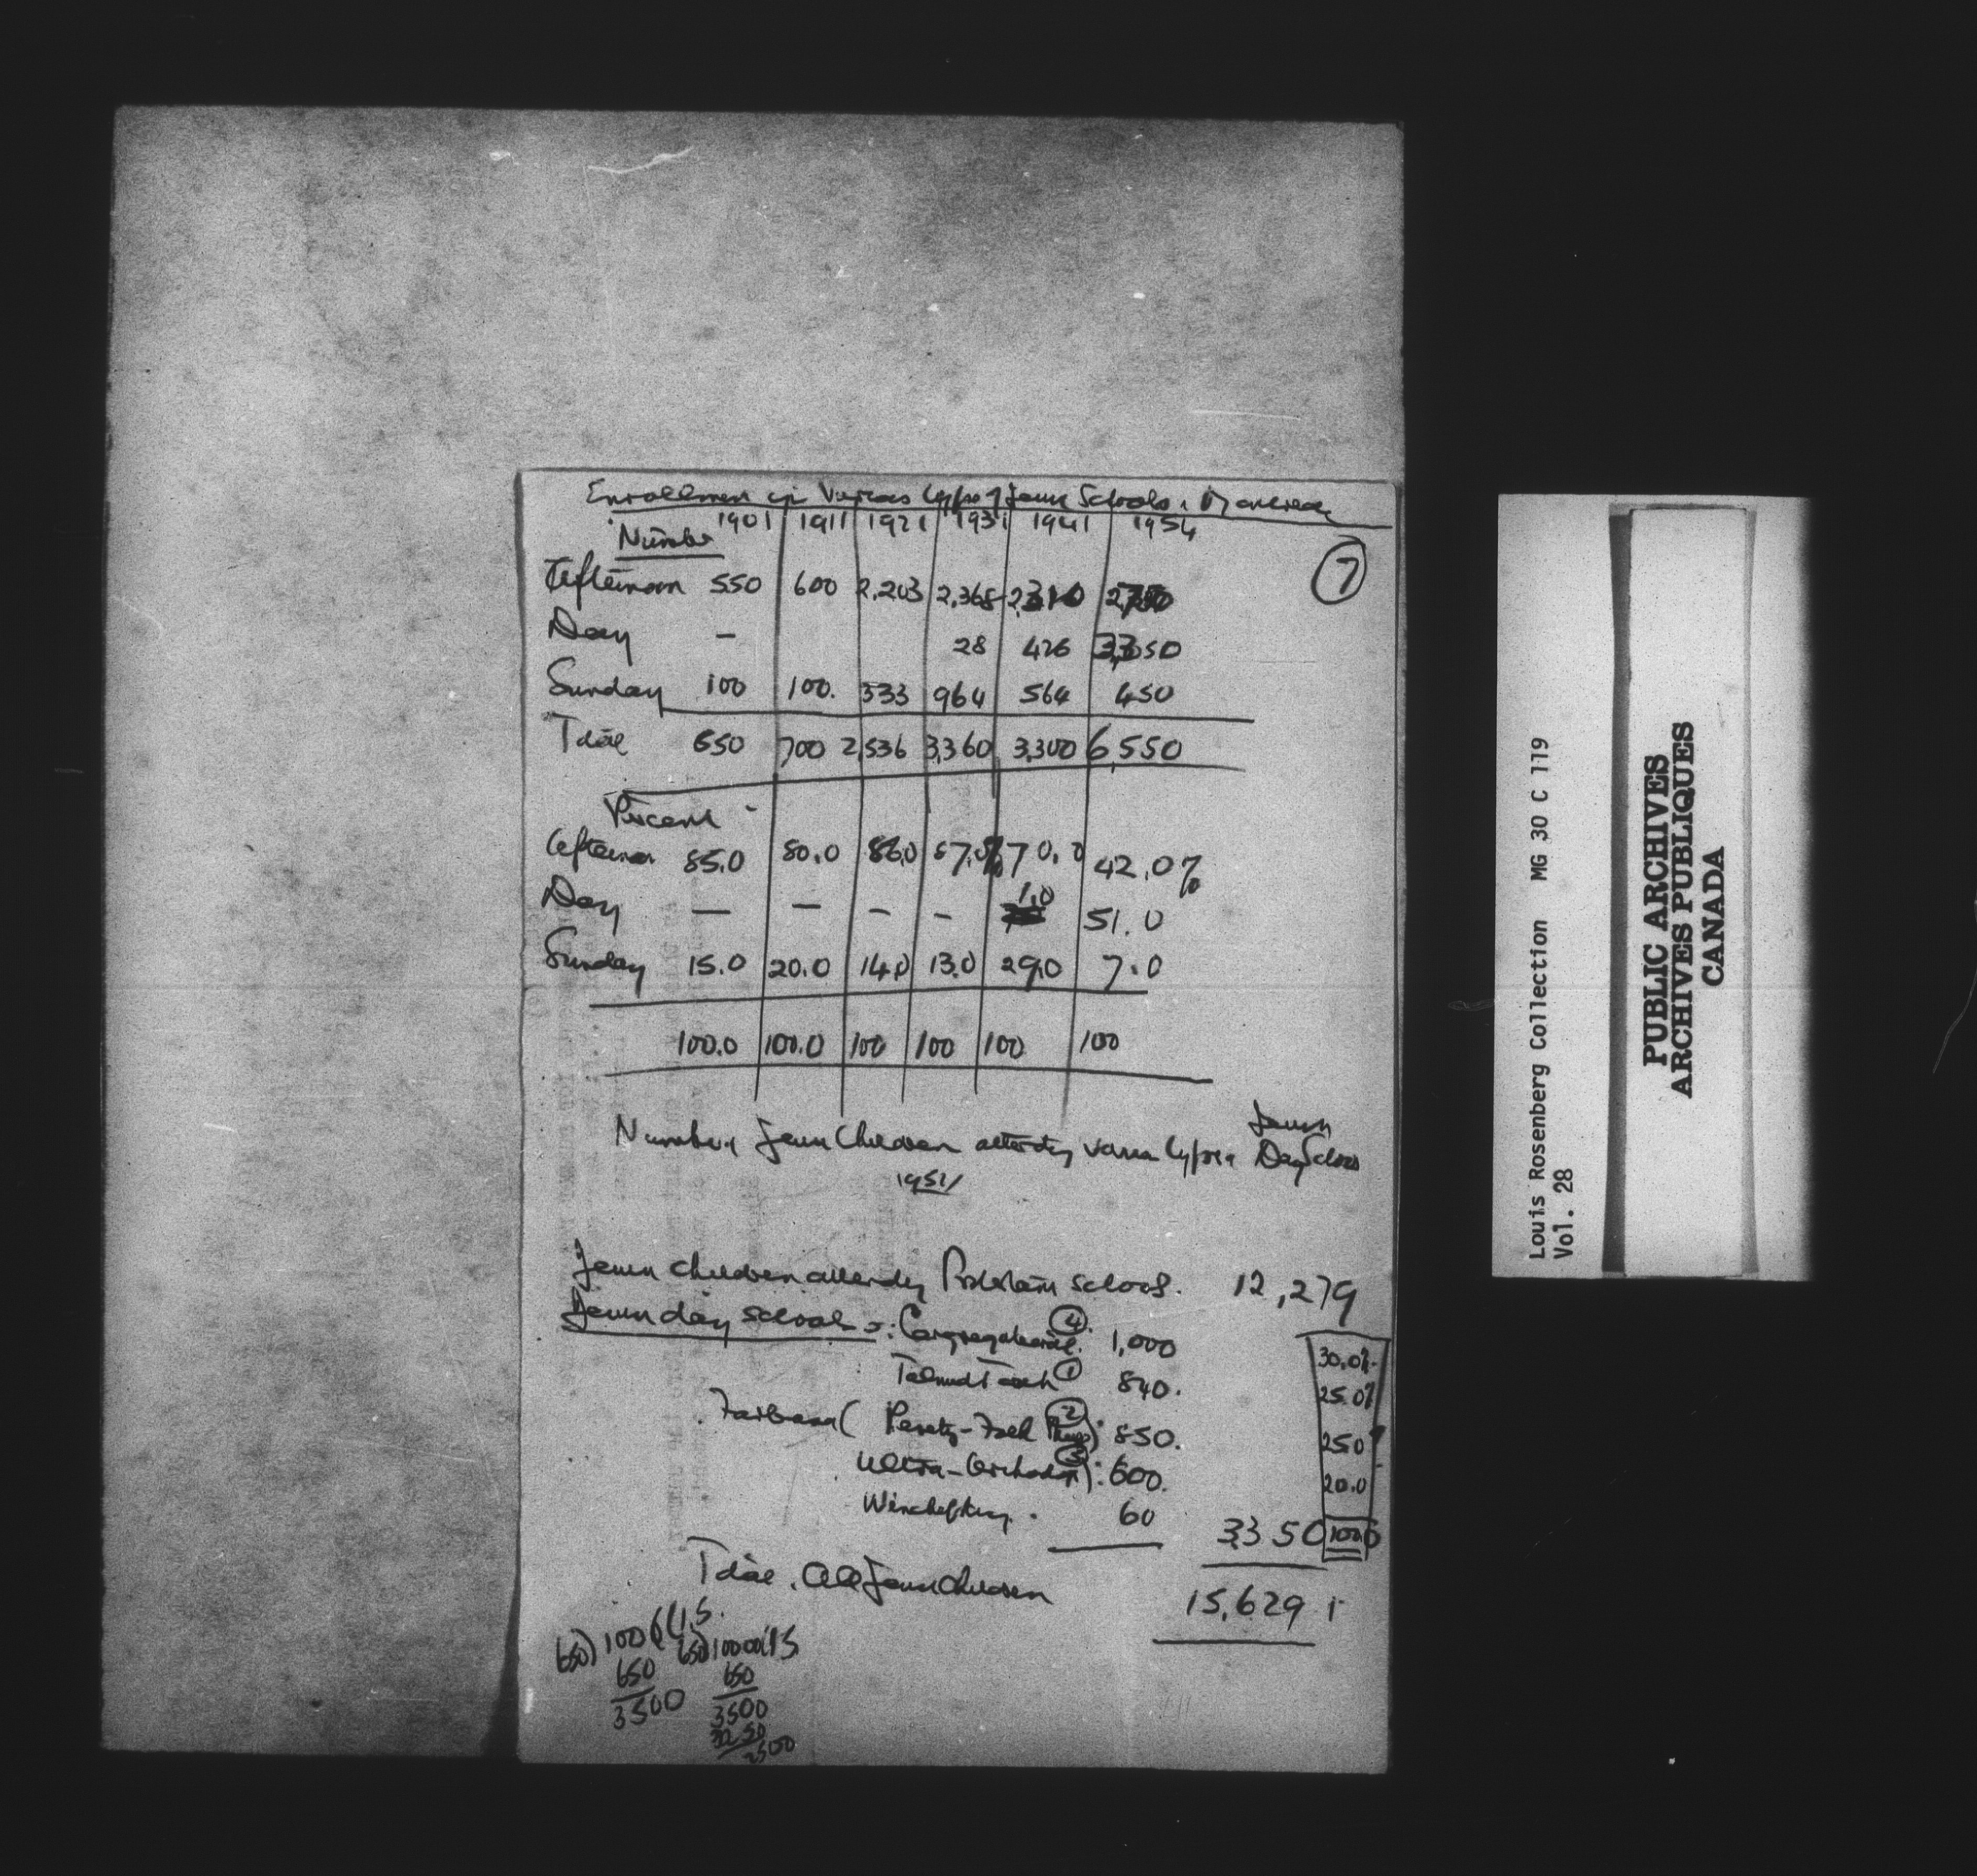 Enrollment in Various types of Jewish Schools, Montreal
1901 1911 1921 1931 1941 1954
Number
7
Afternoon 550 600 2,203 2,368 2,310 2,750
Day — 28 426 3,350
Sunday 100 100. 333 964 564 450
Total 650 700 2,536 3,360 3,300 6,550
Percent
Afternoon 85.0 80.0 86.0 87.0% 70.0 42.0%
Day — — — — 1.0 51.0
Sunday 15.0 20.0 14.0 13.0 29.0 7.0
100.0 100.0 100 100 100 100
Jewish
Number of Jewish Children attending various types of Day Schools
1951
Jewish children attending Protestant schools. 12,279
Jewish day schools: Congregational. 4 1,000 30.0%
Talmud Torah 1 840. 25.0%
( Peretz-Folk 2 ) 850. 25.0
Ultra-Orthodox 3 ): 600. 20.0
Winchefsky. 60
3350 100.0
Total. All Jewish Children 15,629
650)100(1.5. 650)10000(15
650 650
3500 3500
3250
2500
Louis Rosenberg Collection MG 30 C 119
Vol. 28
PUBLIC ARCHIVES
ARCHIVES PUBLIQUES
CANADA